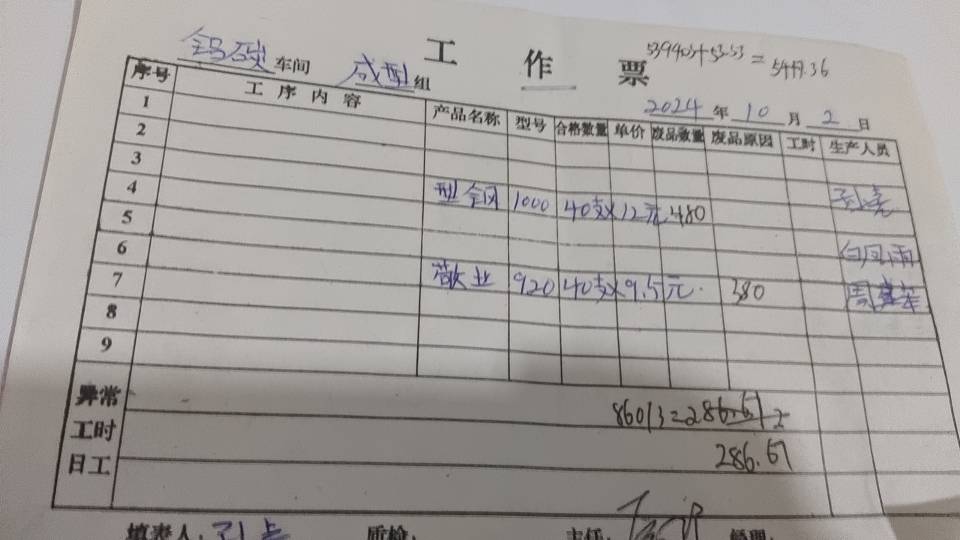 工 作 票
5394.03+53.53=
5447.36
镁碳车间 成型组
2024年10月2日
序号 工序内容 产品名称 型号 合格数量 单价 废品数量 废品原因 工时 生产人员
1
2
3
4 型钢 1000 40支×12元 480
5
6 白同雨
7 敬业 920 40支×9.5元. 380
8
9
异常
工时
日工
860/3=286.67
286.67
填表人: 质检: 主任: 经理: